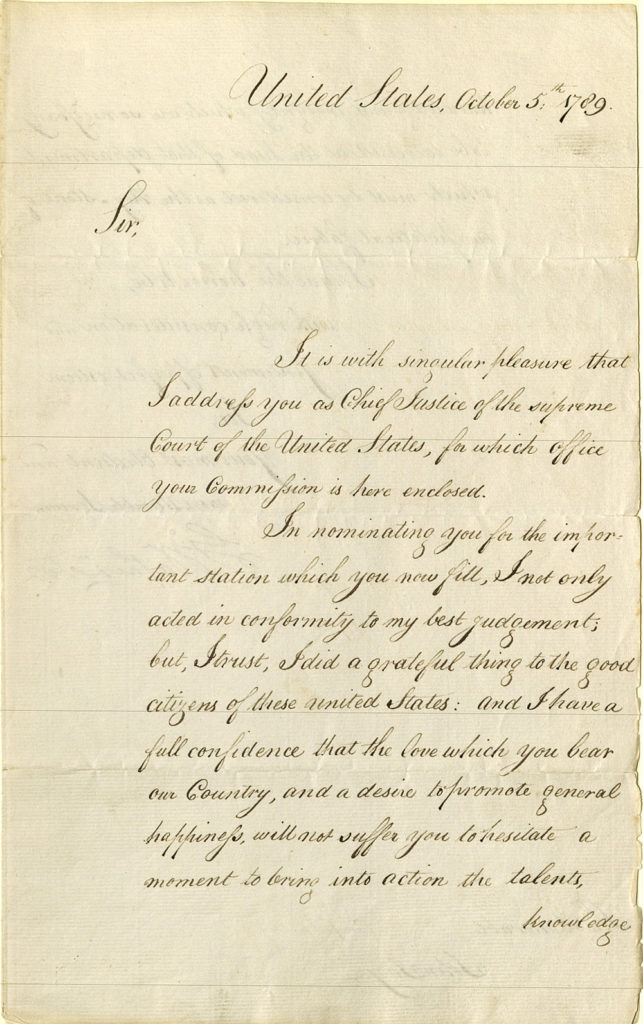 United States, October 5.th 1789.
Sir,
It is with singular pleasure that
I address you as Chief Justice of the supreme
Court of the United States, for which office
your Commission is here enclosed.
In nominating you for the impor-
tant station which you now fill, I not only
acted in conformity to my best judgement;
but, I trust, I did a grateful thing to the good
citizens of these united States: and I have a
full confidence that the love which you bear
our Country, and a desire to promote general
happiness, will not suffer you to hesitate a
moment to bring into action the talents,
knowledge